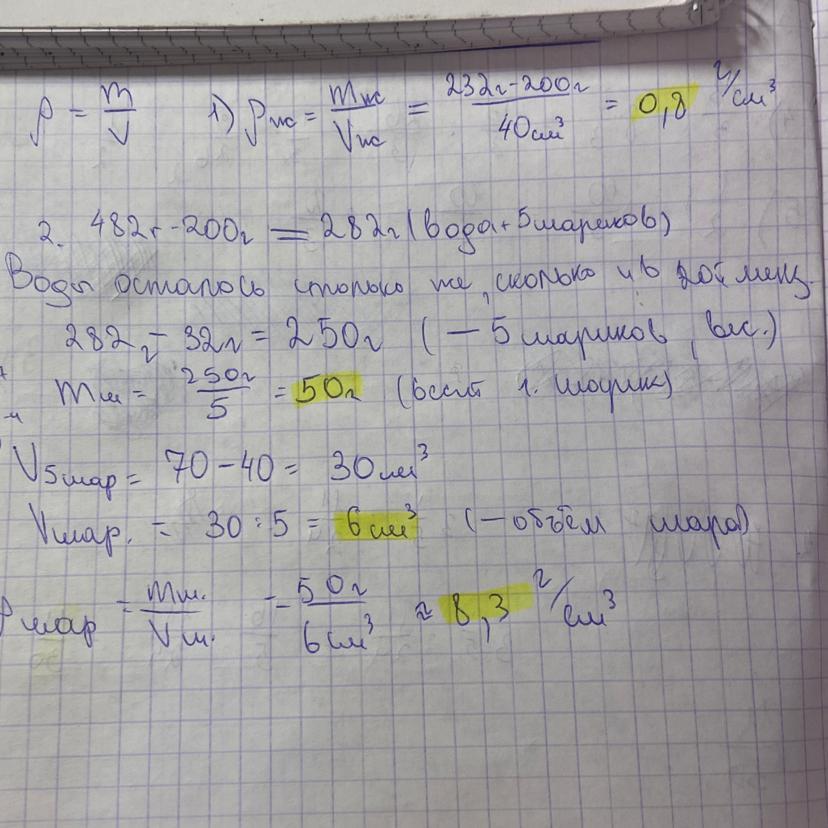 ρ = m/V 1) ρж = mж/Vж = 232г-200г/40см³ = 0,8 г/см³
2. 482г-200г = 282г (вода+5шариков)
Воды осталось столько же, сколько и в 2ой менз.
282г - 32г = 250г (- 5 шариков, вес.)
mш = 250г/5 = 50г (весит 1. шарик)
V5шар = 70-40 = 30см³
Vшар. = 30:5 = 6см³ (-объём шара)
ρшар = mш./Vш. = 50г/6см³ ≈ 8,3 г/см³